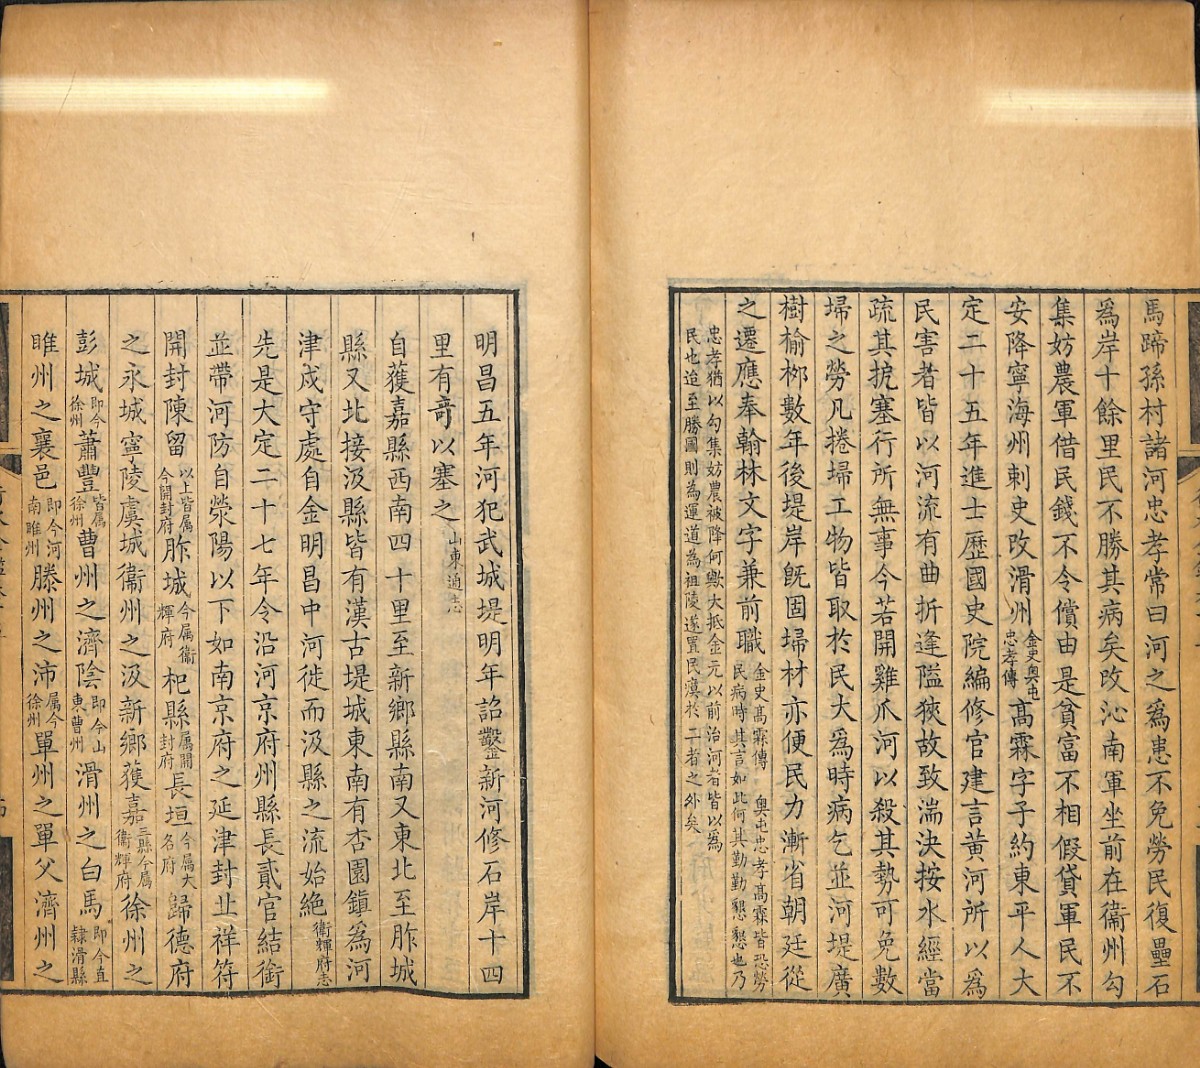 馬蹄孫村諸河忠孝常曰河之爲患不免勞民復壘石
爲岸十餘里民不勝其病矣改沁南軍坐前在衞州勾
集妨農軍借民錢不令償由是貧富不相假貸軍民不
安降寧海州剌史改滑州金史奥屯忠孝傳高霖字子約東平人大
定二十五年進士歷國史院編修官建言黃河所以爲
民害者皆以河流有曲折逢隘狹故致湍決按水經當
疏其扼塞行所無事今若開雞爪河以殺其勢可免數
埽之勞凡捲埽工物皆取於民大爲時病乞並河堤廣
樹榆栁數年後堤岸旣固埽材亦便民力漸省朝廷從
之遷應奉翰林文字兼前職金史高霖傳 奥屯忠孝高霖皆恐勞民病時其言如此何其勤勤懇懇也乃
忠孝猶以勾集妨農被降何歟大抵金元以前治河者皆以爲民也迨至勝國則為運道為祖陵遂置民瘼於二者之外矣
明昌五年河犯武城堤明年詔鑿新河修石岸十四
里有奇以塞之山東通志
自獲嘉縣西南四十里至新鄉縣南又東北至胙城
縣又北接汲縣皆有漢古堤城東南有杏園鎮爲河
津戍守處自金明昌中河徙而汲縣之流始絶衞輝府志
先是大定二十七年令沿河京府州縣長貳官結銜
並帶河防自滎陽以下如南京府之延津封丘祥符
開封陳留以上皆属今開封府胙城今属衞輝府杞縣属開封府長垣今属大名府歸德府
之永城寧陵虞城衞州之汲新鄉獲嘉三縣今属衞輝府徐州之
彭城即今徐州蕭豐皆属徐州曹州之濟陰即今山東曹州滑州之白馬即今直隸滑縣
睢州之襄邑即今河南睢州滕州之沛属今徐州單州之單父濟州之